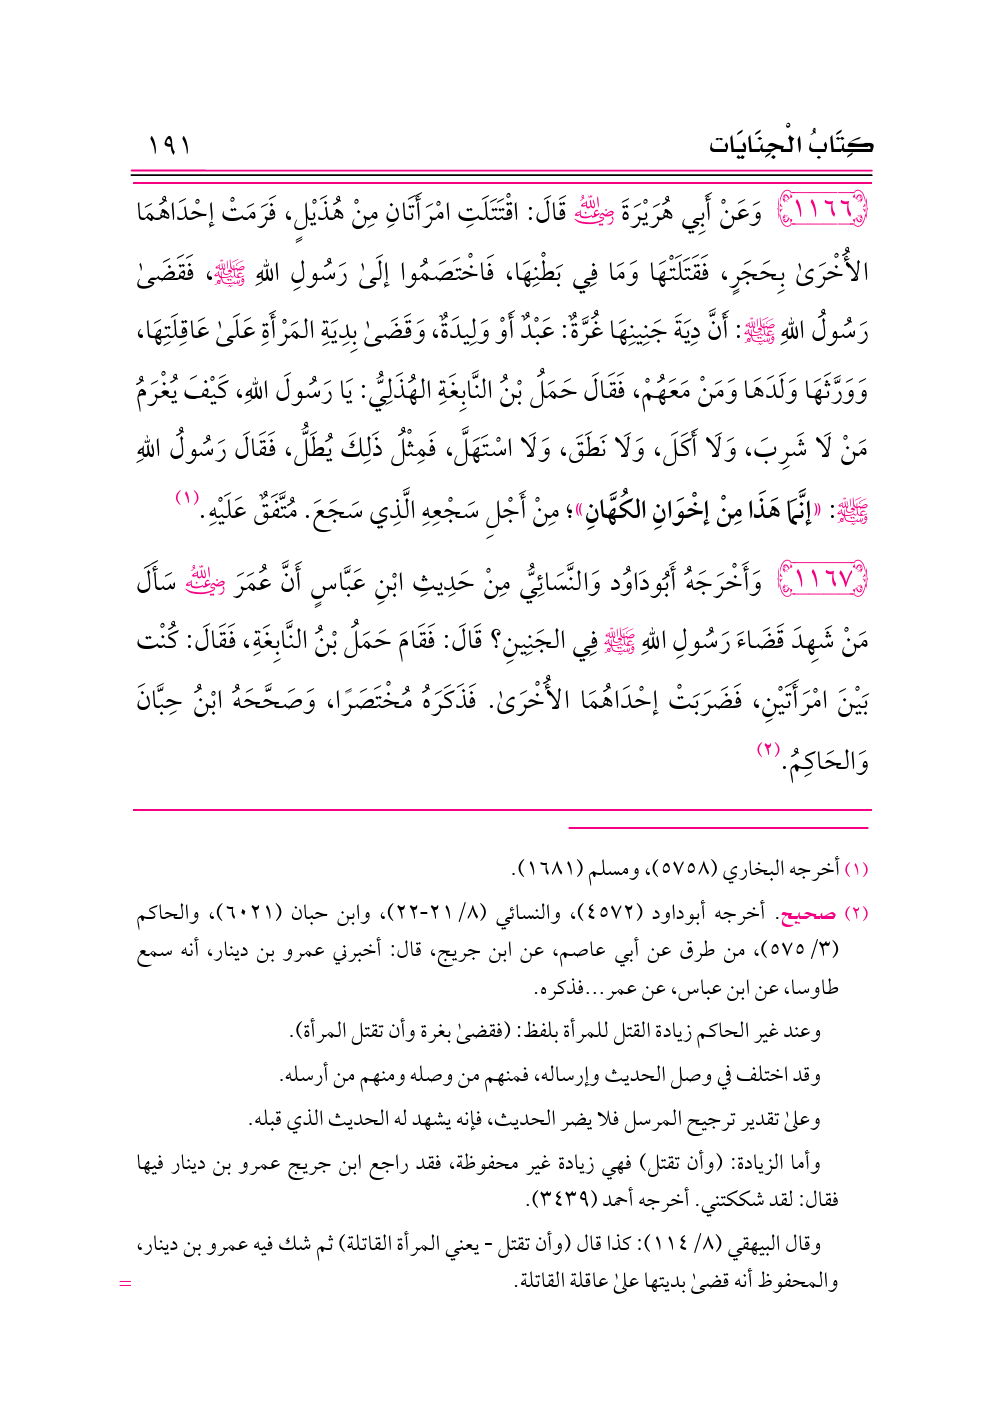 كِتَابُ الْجِنَايَات ١٩١
١١٦٦ وَعَنْ أَبِي هُرَيْرَةَ ﵁ قَالَ: اقْتَتَلَتِ امْرَأَتَانِ مِنْ هُذَيْلٍ، فَرَمَتْ إحْدَاهُمَا
الأُخْرَىٰ بِحَجَرٍ، فَقَتَلَتْهَا وَمَا فِي بَطْنِهَا، فَاخْتَصَمُوا إلَىٰ رَسُولِ اللهِ ﷺ، فَقَضَىٰ
رَسُولُ اللهِ ﷺ: أَنَّ دِيَةَ جَنِينِهَا غُرَّةٌ: عَبْدٌ أَوْ وَلِيدَةٌ، وَقَضَىٰ بِدِيَةِ المَرْأَةِ عَلَىٰ عَاقِلَتِهَا،
وَوَرَّثَهَا وَلَدَهَا وَمَنْ مَعَهُمْ، فَقَالَ حَمَلُ بْنُ النَّابِغَةِ الهُذَلِيُّ: يَا رَسُولَ اللهِ، كَيْفَ يُغْرَمُ
مَنْ لَا شَرِبَ، وَلَا أَكَلَ، وَلَا نَطَقَ، وَلَا اسْتَهَلَّ، فَمِثْلُ ذَلِكَ يُطَلُّ، فَقَالَ رَسُولُ اللهِ
ﷺ: «إنَّمَا هَذَا مِنْ إخْوَانِ الكُهَّانِ»؛ مِنْ أَجْلِ سَجْعِهِ الَّذِي سَجَعَ. مُتَّفَقٌ عَلَيْهِ.(١)
١١٦٧ وَأَخْرَجَهُ أَبُودَاوُد وَالنَّسَائِيُّ مِنْ حَدِيثِ ابْنِ عَبَّاسٍ أَنَّ عُمَرَ ﵁ سَأَلَ
مَنْ شَهِدَ قَضَاءَ رَسُولِ اللهِ ﷺ فِي الجَنِينِ؟ قَالَ: فَقَامَ حَمَلُ بْنُ النَّابِغَةِ، فَقَالَ: كُنْت
بَيْنَ امْرَأَتَيْنِ، فَضَرَبَتْ إحْدَاهُمَا الأُخْرَىٰ. فَذَكَرَهُ مُخْتَصَرًا، وَصَحَّحَهُ ابْنُ حِبَّانَ
وَالحَاكِمُ.(٢)
(١) أخرجه البخاري (٥٧٥٨)، ومسلم (١٦٨١).
(٢) صحيح. أخرجه أبوداود (٤٥٧٢)، والنسائي (٨/ ٢١-٢٢)، وابن حبان (٦٠٢١)، والحاكم
(٣/ ٥٧٥)، من طرق عن أبي عاصم، عن ابن جريج، قال: أخبرني عمرو بن دينار، أنه سمع
طاوسا، عن ابن عباس، عن عمر...فذكره.
وعند غير الحاكم زيادة القتل للمرأة بلفظ: (فقضىٰ بغرة وأن تقتل المرأة).
وقد اختلف في وصل الحديث وإرساله، فمنهم من وصله ومنهم من أرسله.
وعلىٰ تقدير ترجيح المرسل فلا يضر الحديث، فإنه يشهد له الحديث الذي قبله.
وأما الزيادة: (وأن تقتل) فهي زيادة غير محفوظة، فقد راجع ابن جريج عمرو بن دينار فيها
فقال: لقد شككتني. أخرجه أحمد (٣٤٣٩).
وقال البيهقي (٨/ ١١٤): كذا قال (وأن تقتل - يعني المرأة القاتلة) ثم شك فيه عمرو بن دينار،
والمحفوظ أنه قضىٰ بديتها علىٰ عاقلة القاتلة. =